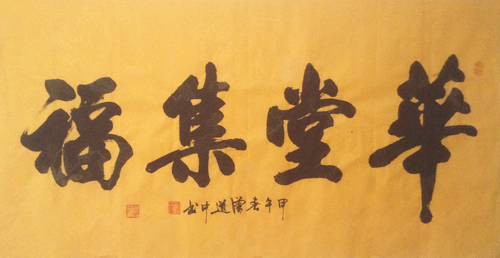 華堂集福
甲午春漢道中书